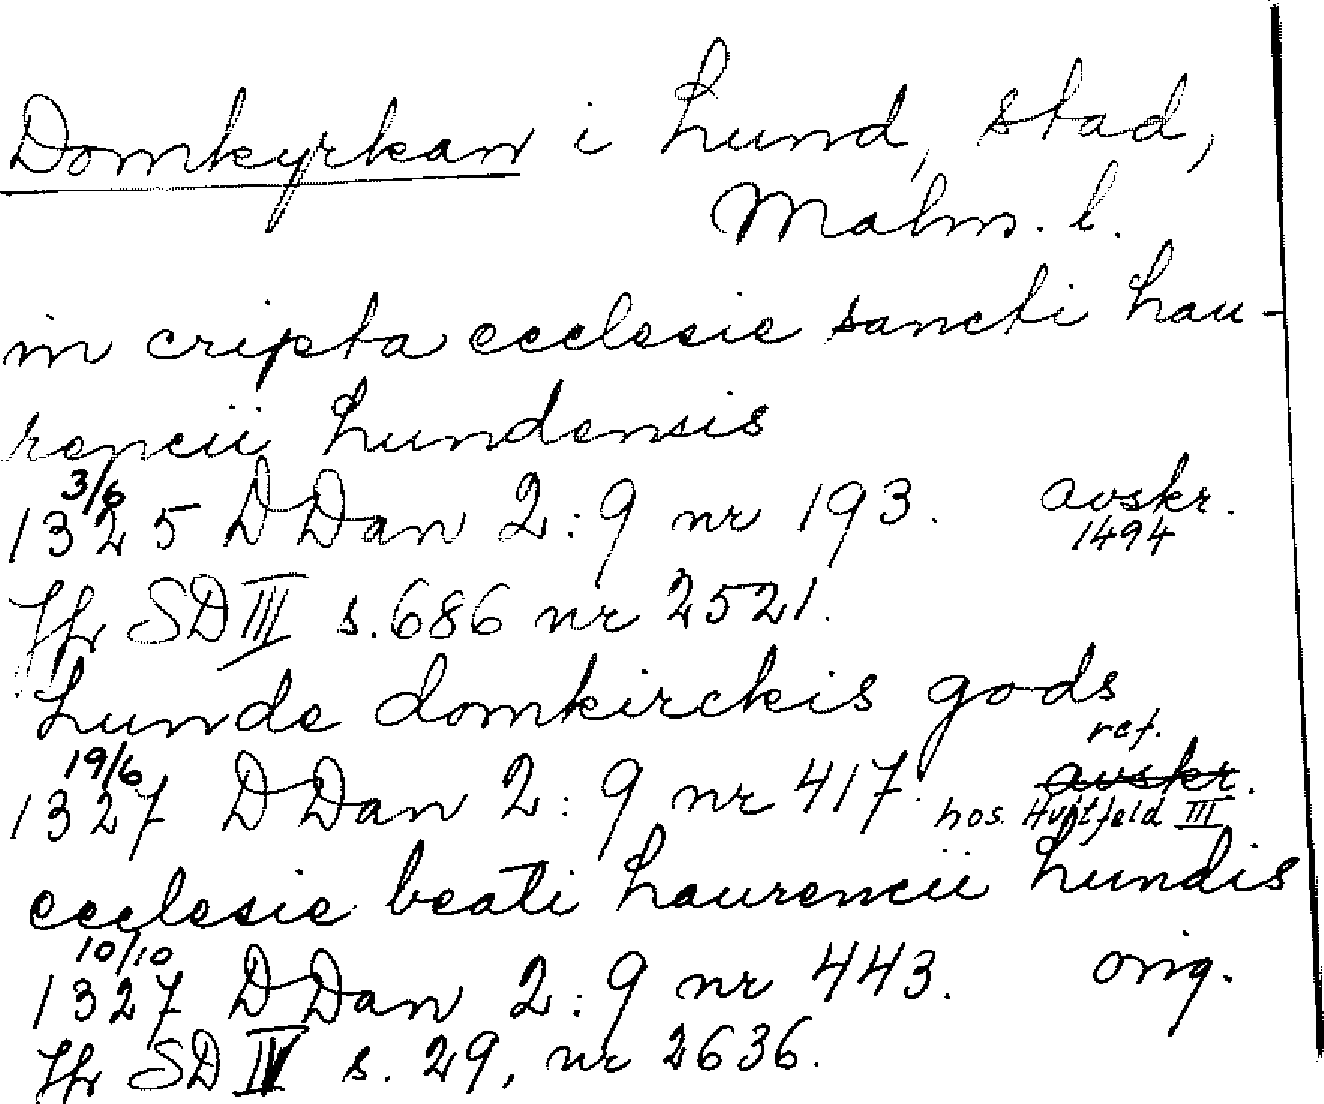 Domkyrkan i Lund, stad,
Malm. l.
in cripta ecclesie sancti Lau-
rencii Lundensis
3/6
1325 DDan 2:9 nr 193. avskr.
1494
Jfr SD III s. 686 nr 2521.
Lunde domkirckis gods
ref.
19/6
1327 DDan 2:9 nr 417. avskr.
hos. Huitfeld III
ecclesie beati Laurencii Lundis
10/10
1327 DDan 2:9 nr 443. orig.
Jfr SD IV s. 29, nr 2636.